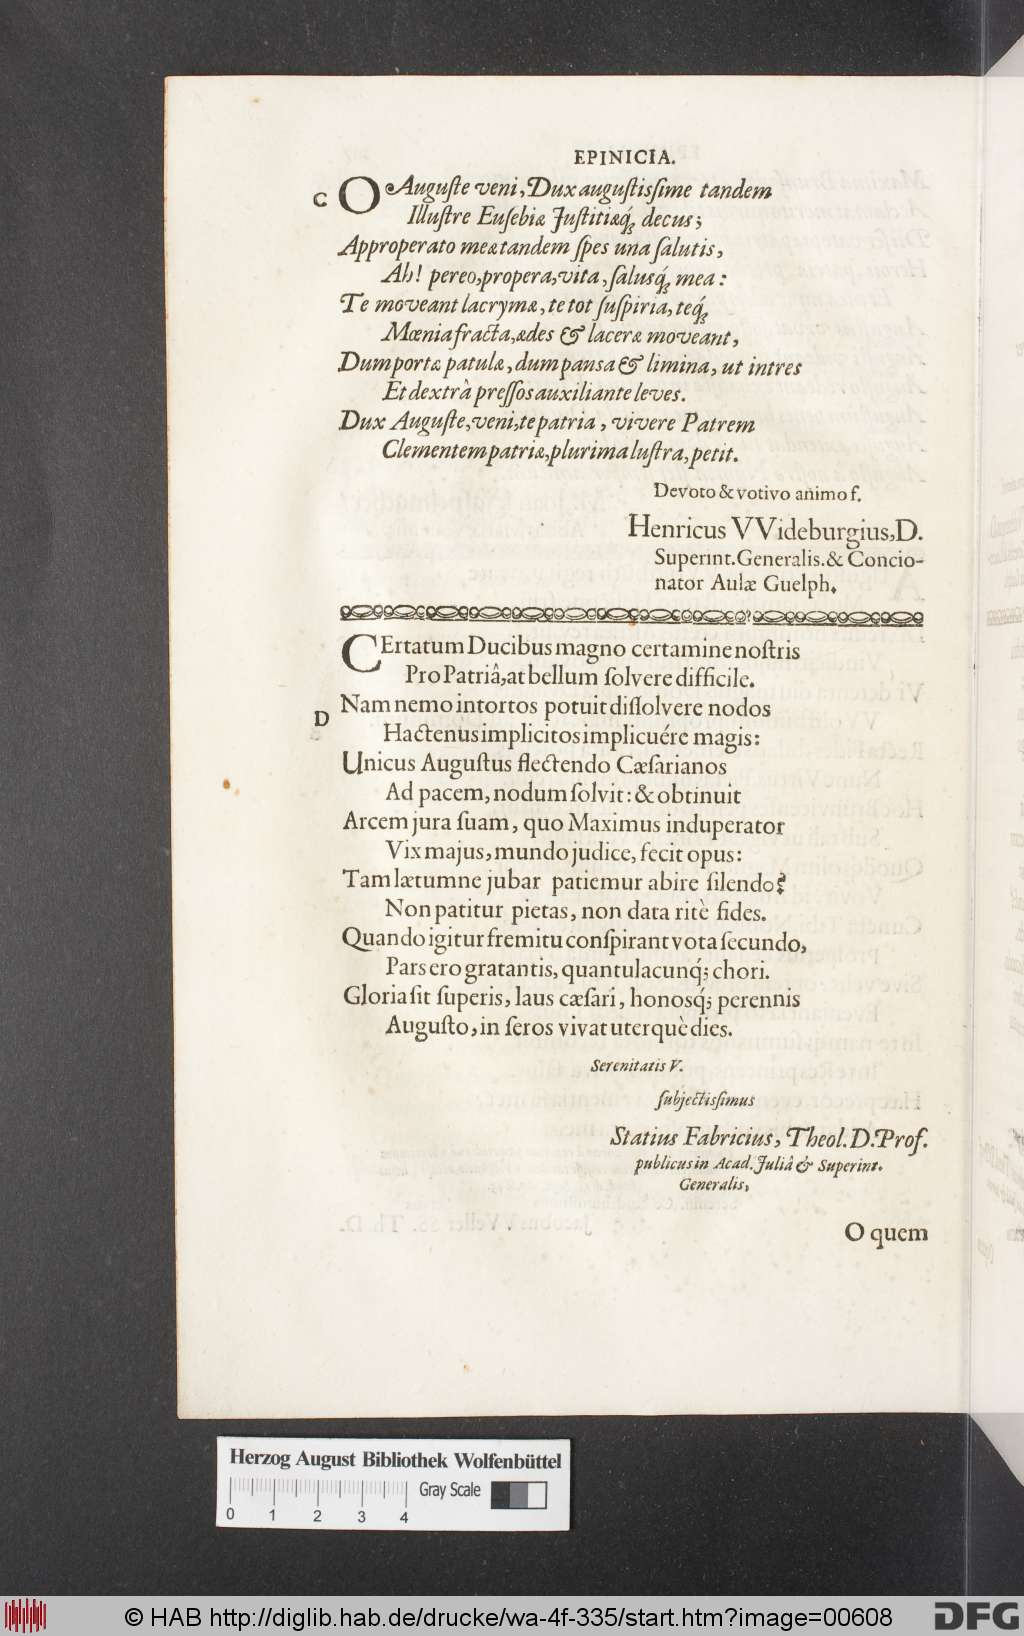 EPINICIA.
C O Auguſte veni, Dux auguſtiſſime tandem
Illuſtre Euſebiæ Juſtitiæq́; decus;
Approperato meæ tandem ſpes una ſalutis,
Ah! pereo, propera, vita, ſalusq́; mea:
Te moveant lacrymæ, te tot ſuſpiria, teq́;
Mœnia fracta, ædes & laceræ moveant,
Dum portæ patulæ, dum panſa & limina, ut intres
Et dextrà preſſos auxiliante leves.
Dux Auguſte, veni, te patria, vivere Patrem
Clementem patriæ, plurima luſtra, petit.
Devoto & votivo animo f.
Henricus VVideburgius, D.
Superint. Generalis. & Concio-
nator Aulæ Guelph.
CErtatum Ducibus magno certamine noſtris
Pro Patriâ, at bellum ſolvere difficile.
D Nam nemo intortos potuit diſſolvere nodos
Hactenus implicitos implicuére magis:
Unicus Auguſtus flectendo Cæſarianos
Ad pacem, nodum ſolvit: & obtinuit
Arcem jura ſuam, quo Maximus induperator
Vix majus, mundo judice, fecit opus:
Tam lætumne jubar patiemur abire ſilendo?
Non patitur pietas, non data ritè fides.
Quando igitur fremitu conſpirant vota ſecundo,
Pars ero gratantis, quantulacunq́; chori.
Gloria ſit ſuperis, laus cæſari, honosq́; perennis
Auguſto, in ſeros vivat uterquè dies.
Serenitatis V.
ſubjectiſſimus
Statius Fabricius, Theol. D. Prof.
publicus in Acad. Juliâ & Superint.
Generalis,
O quem
Herzog August Bibliothek Wolfenbüttel
Gray Scale
0 1 2 3 4
© HAB http://diglib.hab.de/drucke/wa-4f-335/start.htm?image=00608
DFG